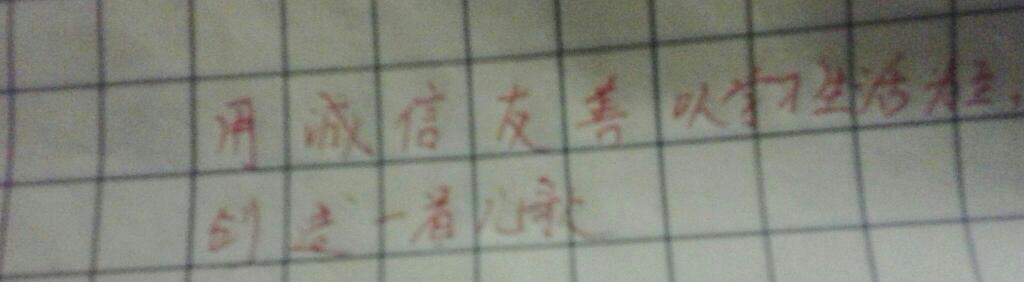 用诚信友善以学习生活为主，
创造一首儿歌